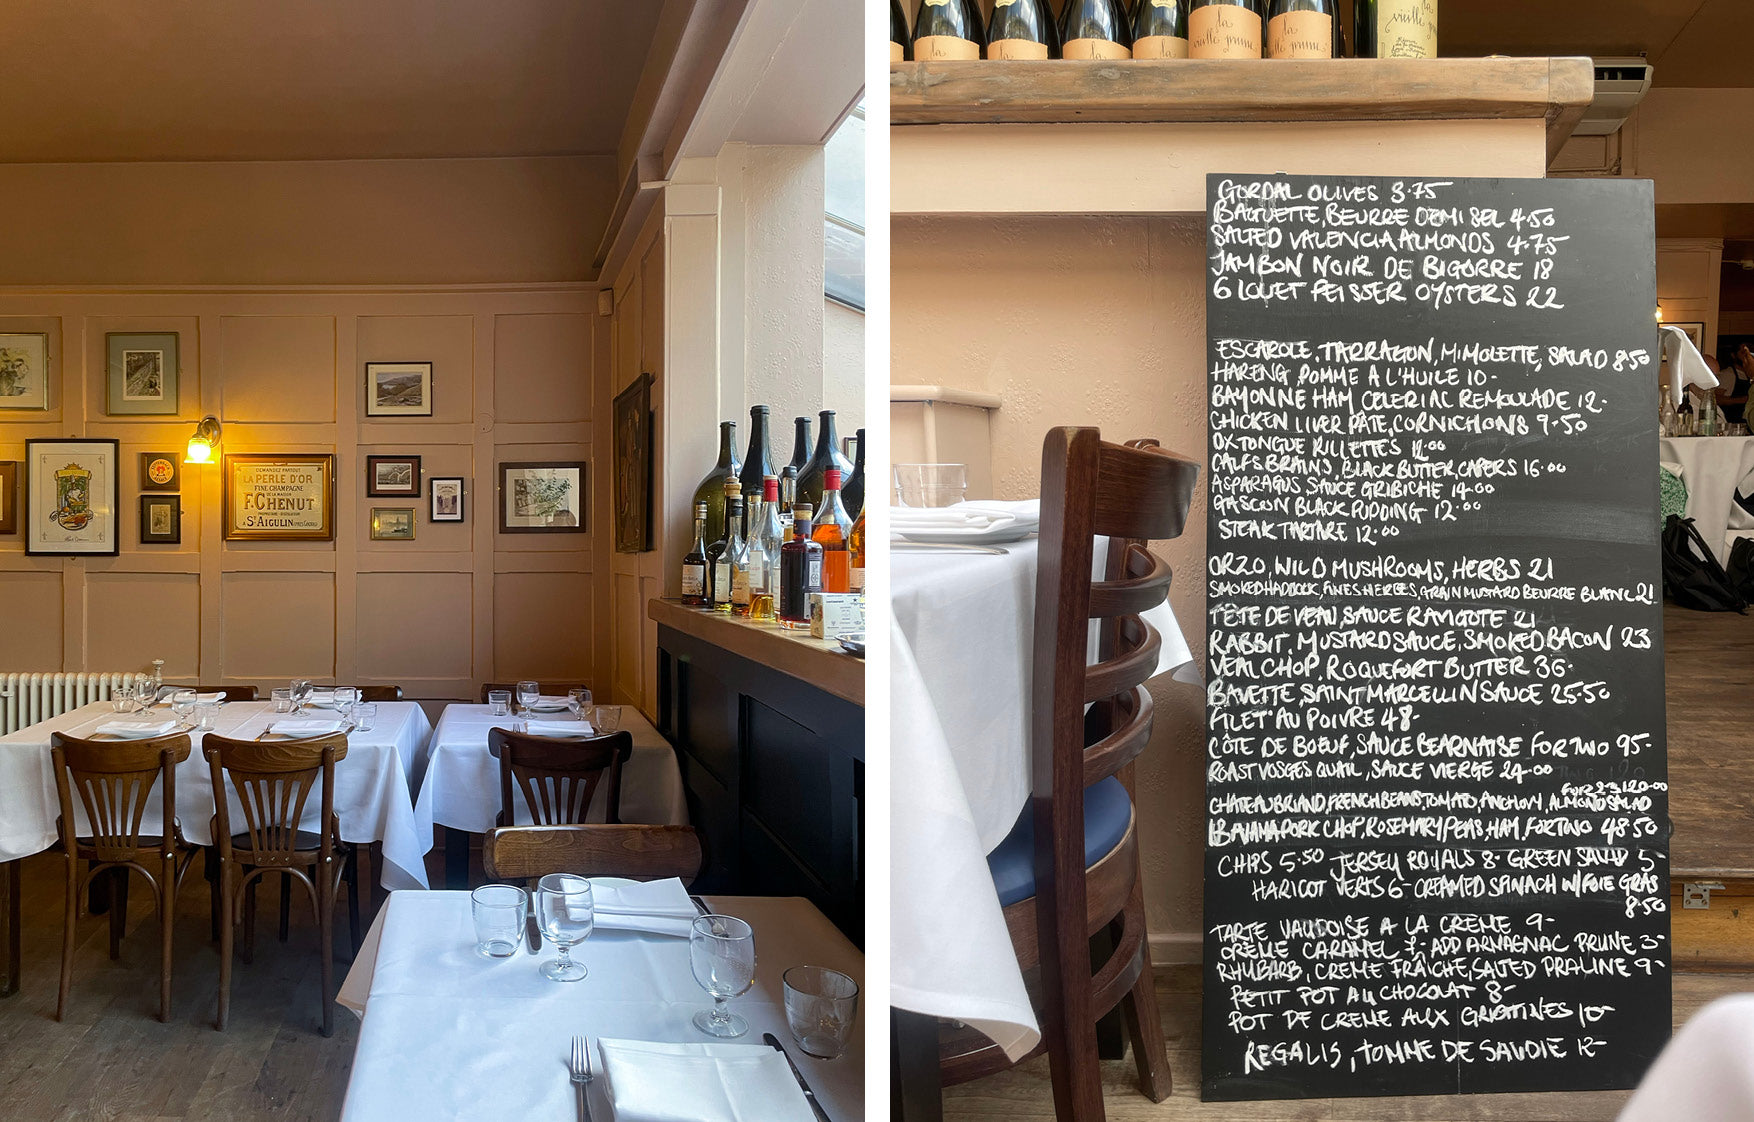 DEMANDEZ PARTOUT
LA PERLE D'OR
FINE CHAMPAGNE
DE LA MAISON
F. CHENUT
PROPRIETAIRE-DISTILLATEUR
A ST AIGULIN
la
la
la
la
la
vieille prune
la
vieille prune
la
vieille
GORDAL OLIVES 3.75
BAGUETTE, BEURRE DEMI SEL 4.50
SALTED VALENCIA ALMONDS 4.75
JAMBON NOIR DE BIGORRE 18
6 LOUET FEISSER OYSTERS 22
ESCAROLE, TARRAGON, MIMOLETTE, SALAD 8.50
HARENG POMME A L'HUILE 10-
BAYONNE HAM CELERIAC REMOULADE 12-
CHICKEN LIVER PÂTE, CORNICHONS 9.50
OX TONGUE RILLETTES 12.00
CALFS BRAINS, BLACK BUTTER, CAPERS 16.00
ASPARAGUS, SAUCE GRIBICHE 14.00
GASCON BLACK PUDDING 12.00
STEAK TARTARE 12.00
ORZO, WILD MUSHROOMS, HERBS 21
SMOKED HADDOCK, FINES HERBES, GRAIN MUSTARD BEURRE BLANC 21
TÊTE DE VEAU, SAUCE RAVIGOTE 21
RABBIT, MUSTARD SAUCE, SMOKED BACON 23
VEAL CHOP, ROQUEFORT BUTTER 36-
BAVETTE, SAINT MARCELLIN SAUCE 25.50
FILET AU POIVRE 48-
CÔTE DE BOEUF, SAUCE BEARNAISE FOR TWO 95-
ROAST VOSGES QUAIL, SAUCE VIERGE 24.00
FOR 2-3 120.00
CHATEAUBRIAND, FRENCH BEANS, TOMATO, ANCHOVY, ALMOND SALAD
IBAIAMA PORK CHOP, ROSEMARY PEAS, HAM, FOR TWO 48.50
CHIPS 5.50 JERSEY ROYALS 8- GREEN SALAD 5-
HARICOT VERTS 6- CREAMED SPINACH W/ FOIE GRAS
8.50
TARTE VAUDOISE A LA CREME 9-
CRELLE CARAMEL 7- ADD ARMAGNAC PRUNE 3-
RHUBARB, CREME FRAÎCHE, SALTED PRALINE 9-
PETIT POT AU CHOCOLAT 8-
POT DE CREME AUX GRIOTTINES 10-
REGALIS, TOMME DE SAVOIE 12-